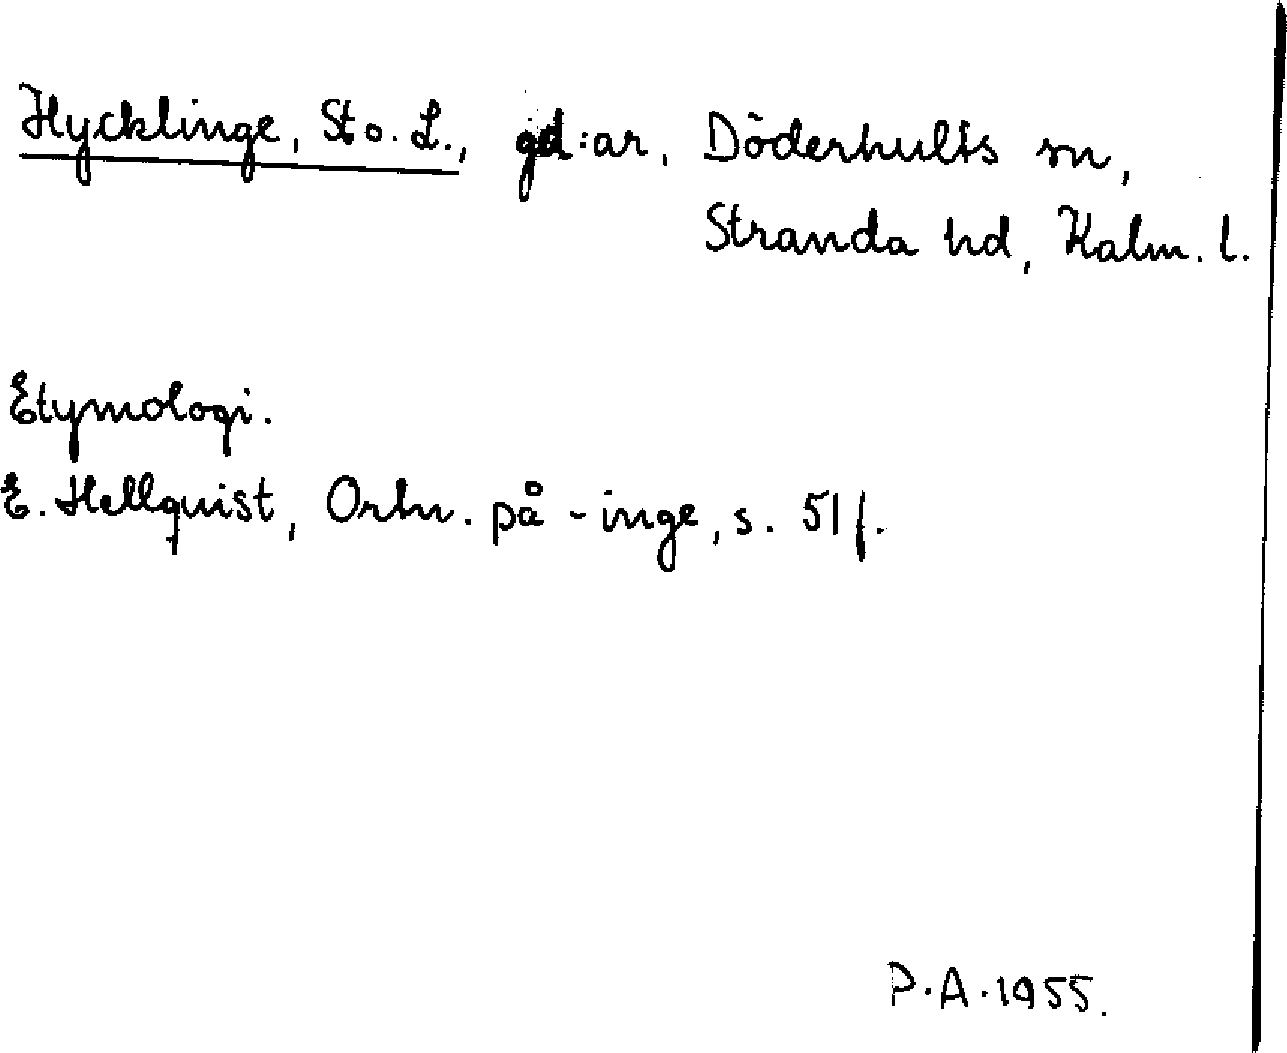 Hycklinge, St o. L., gd:ar, Döderhults sn,
Stranda hd, Kalm. l.
Etymologi.
E. Hellquist, Ortn. på -inge, s. 51 f.
P.A. 1955.